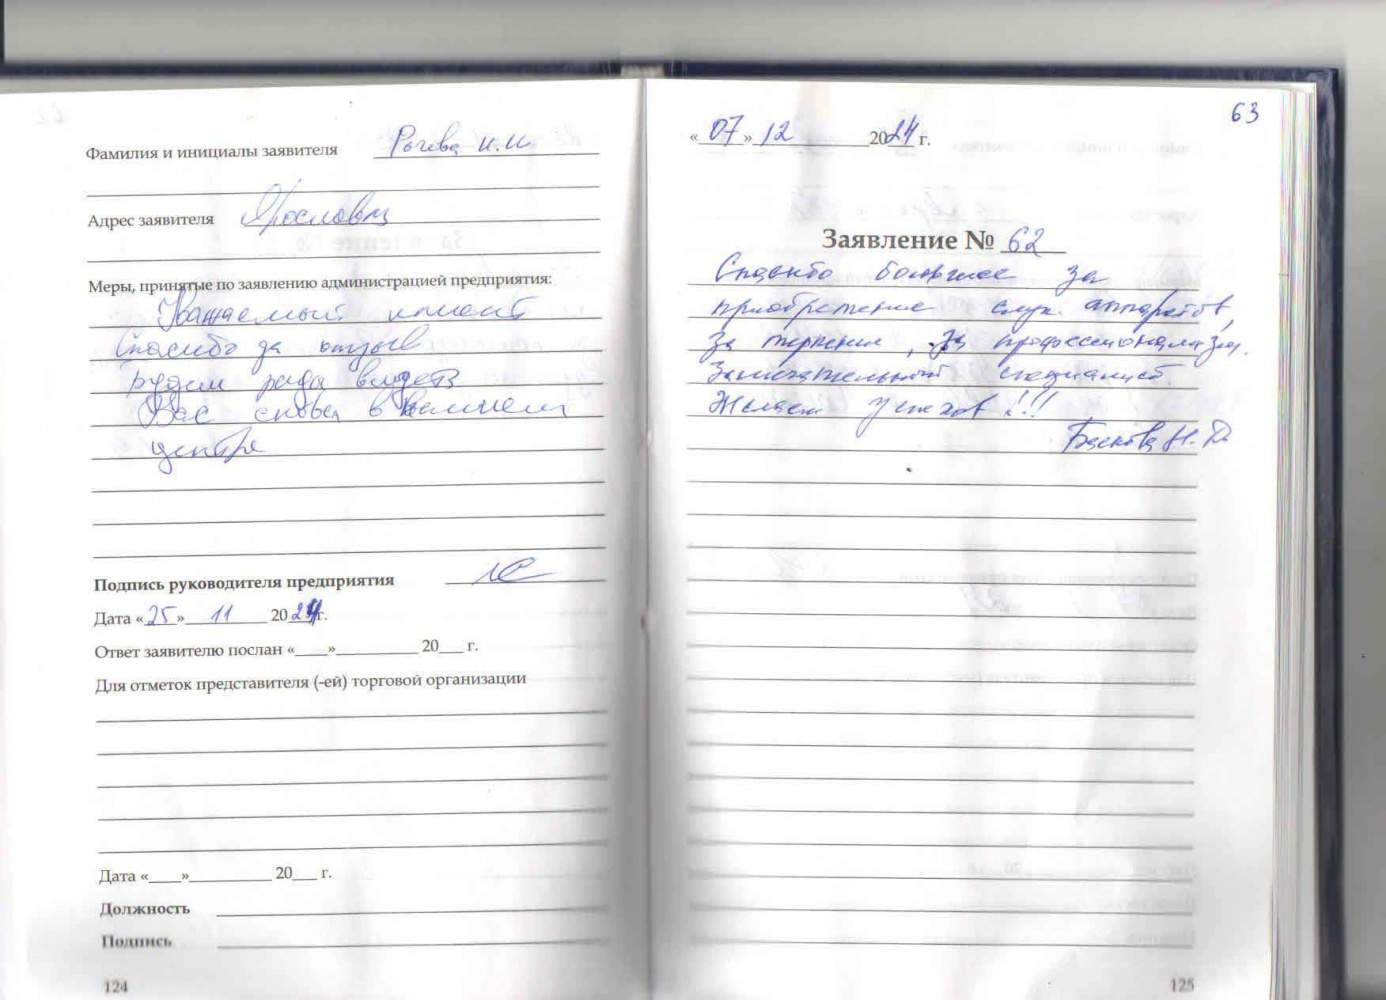 Фамилия и инициалы заявителя Рогева И.И
Адрес заявителя Ярославль
Меры, принятые по заявлению администрацией предприятия:
Уважаемый клиент
Спасибо за отзыв
Будем рады видеть
Вас снова в нашем
центре
Подпись руководителя предприятия
Дата «25» 11 2024г.
Ответ заявителю послан «____»__________ 20___ г.
Для отметок представителя (-ей) торговой организации
Дата «____»__________ 20___ г.
Должность
Подпись
124
63
«07» 12 2024 г.
Заявление № 62
Спасибо большое за
приобретение слух. аппаратов,
за терпение, за профессионализм.
Замечательный специалист.
Желаем успехов!!!
125